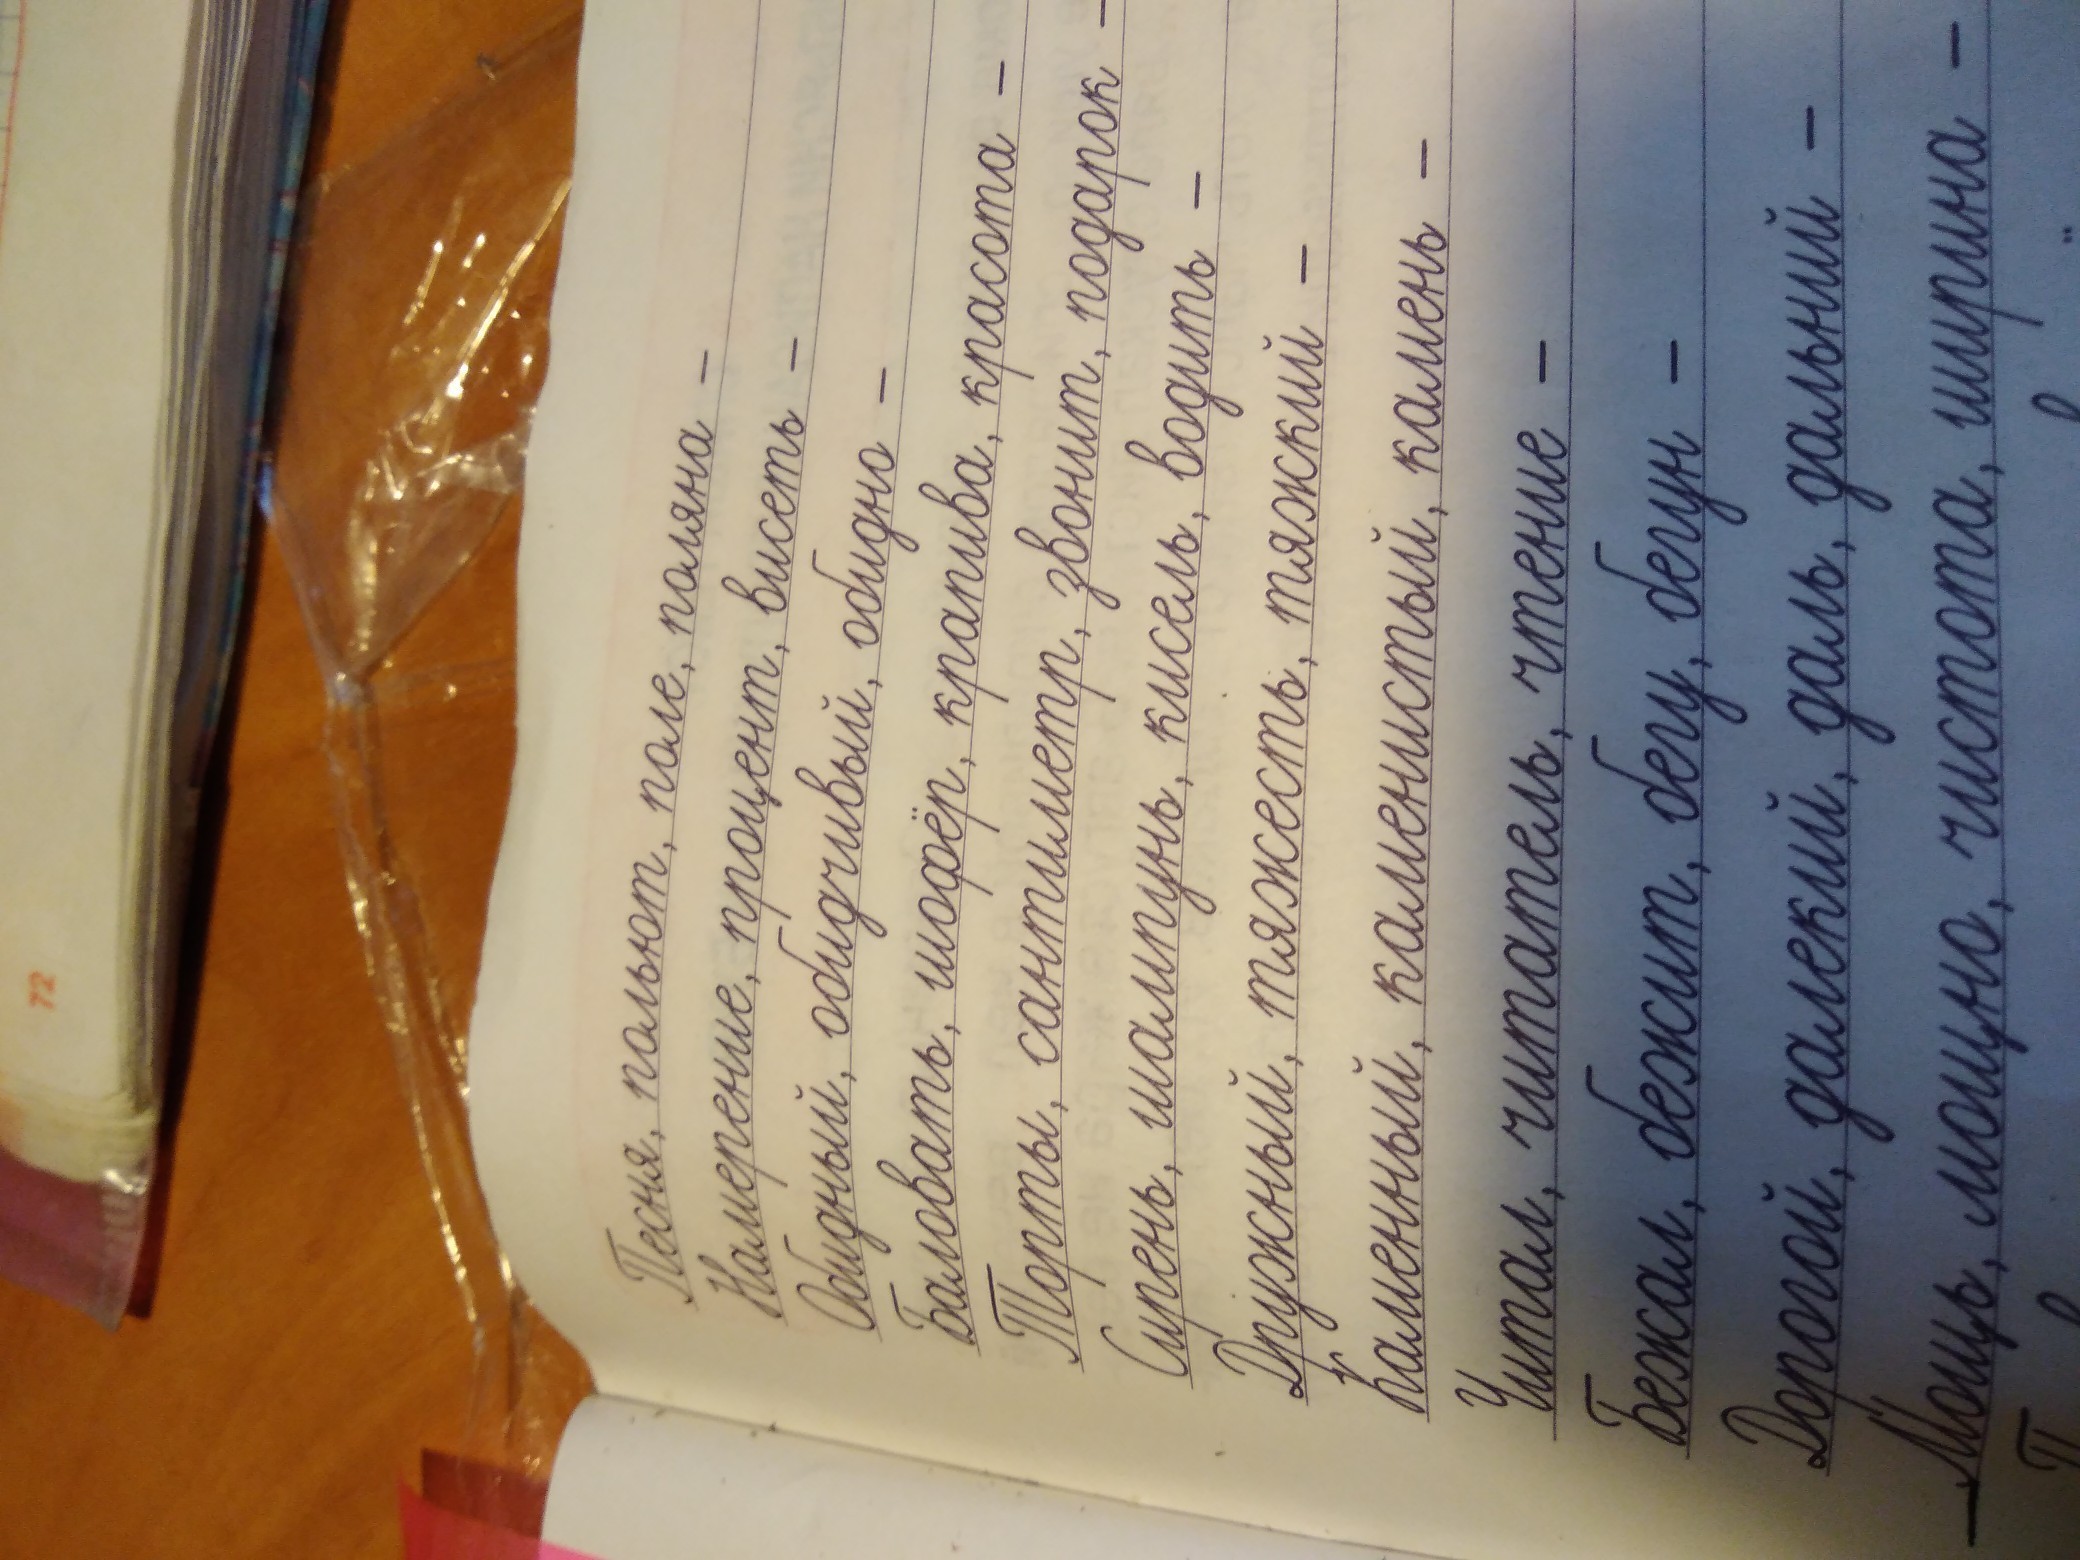 Песня, польют, поле, поляна –
Намерение, процент, висеть –
Обидный, обидчивый, обидно –
Баловать, шофёр, крапива, красота –
Торты, сантиметр, звонит, подарок –
Сирень, шампунь, кисель, водить –
Дружный, тяжесть, тяжкий –
Каменный, каменистый, камень –
Читал, читатель, чтение –
Бежал, бежит, бегу, бегун –
Дорогой, далекий, даль, дальний –
Мощь, мощно, чистота, ширина –
72